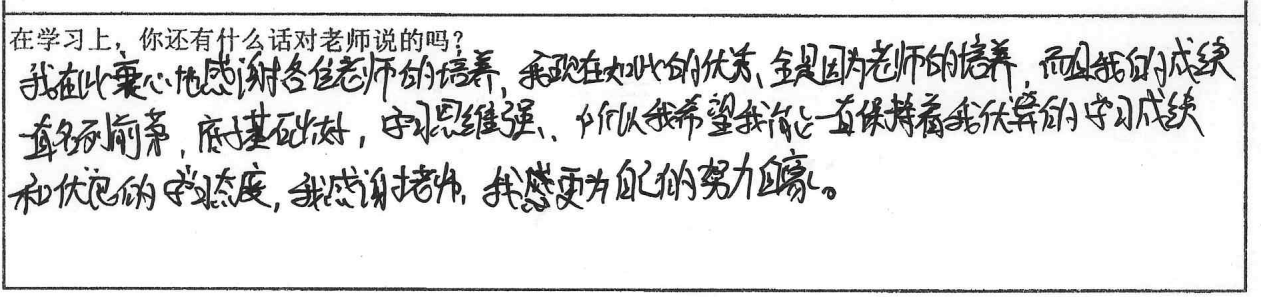 在学习上，你还有什么话对老师说的吗？
我在此衷心地感谢各位老师的培养，我现在如此的优秀、全是因为老师的培养，而且我的成绩
一直名列前茅，底子基础好，学习思维强、所以我希望我能一直保持着我优异的学习成绩
和优良的学习态度，我感谢老师，我更为自己的努力自豪。